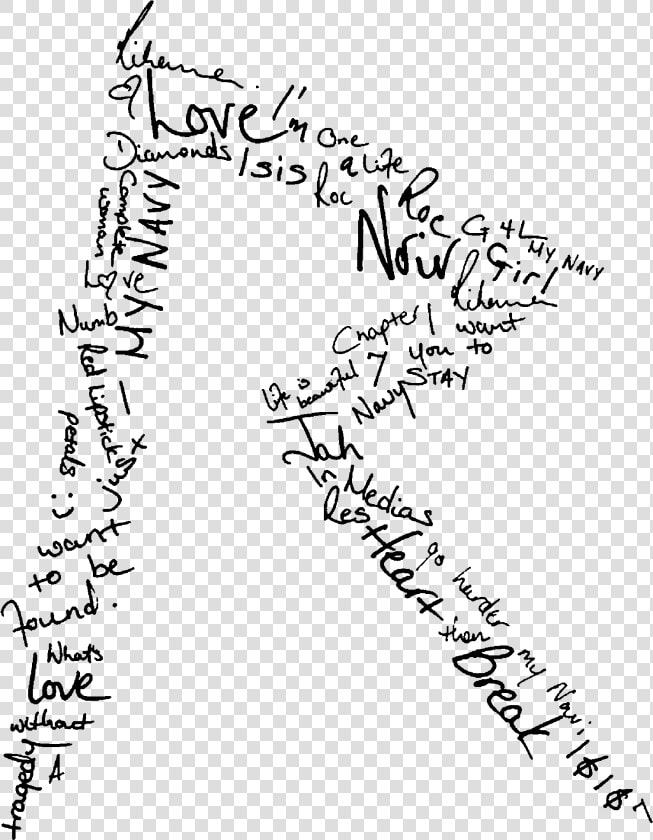 Rihanna
Love
I'm
One
a Life
Diamonds
Isis
Roc
Roc
G4L
MY NAVY
Noir
Girl
Rihanna
Complete
woman
MY NAVY
Love
Numb
Chapter
7
I want
you to
STAY
Life is
beautiful
Navy
Red Lipstick
petals :)
x
Jah
In Medias
Res
want
to be
found.
Heart
go harder
than
my Navi
Break
What's
Love
without
A
tragedy